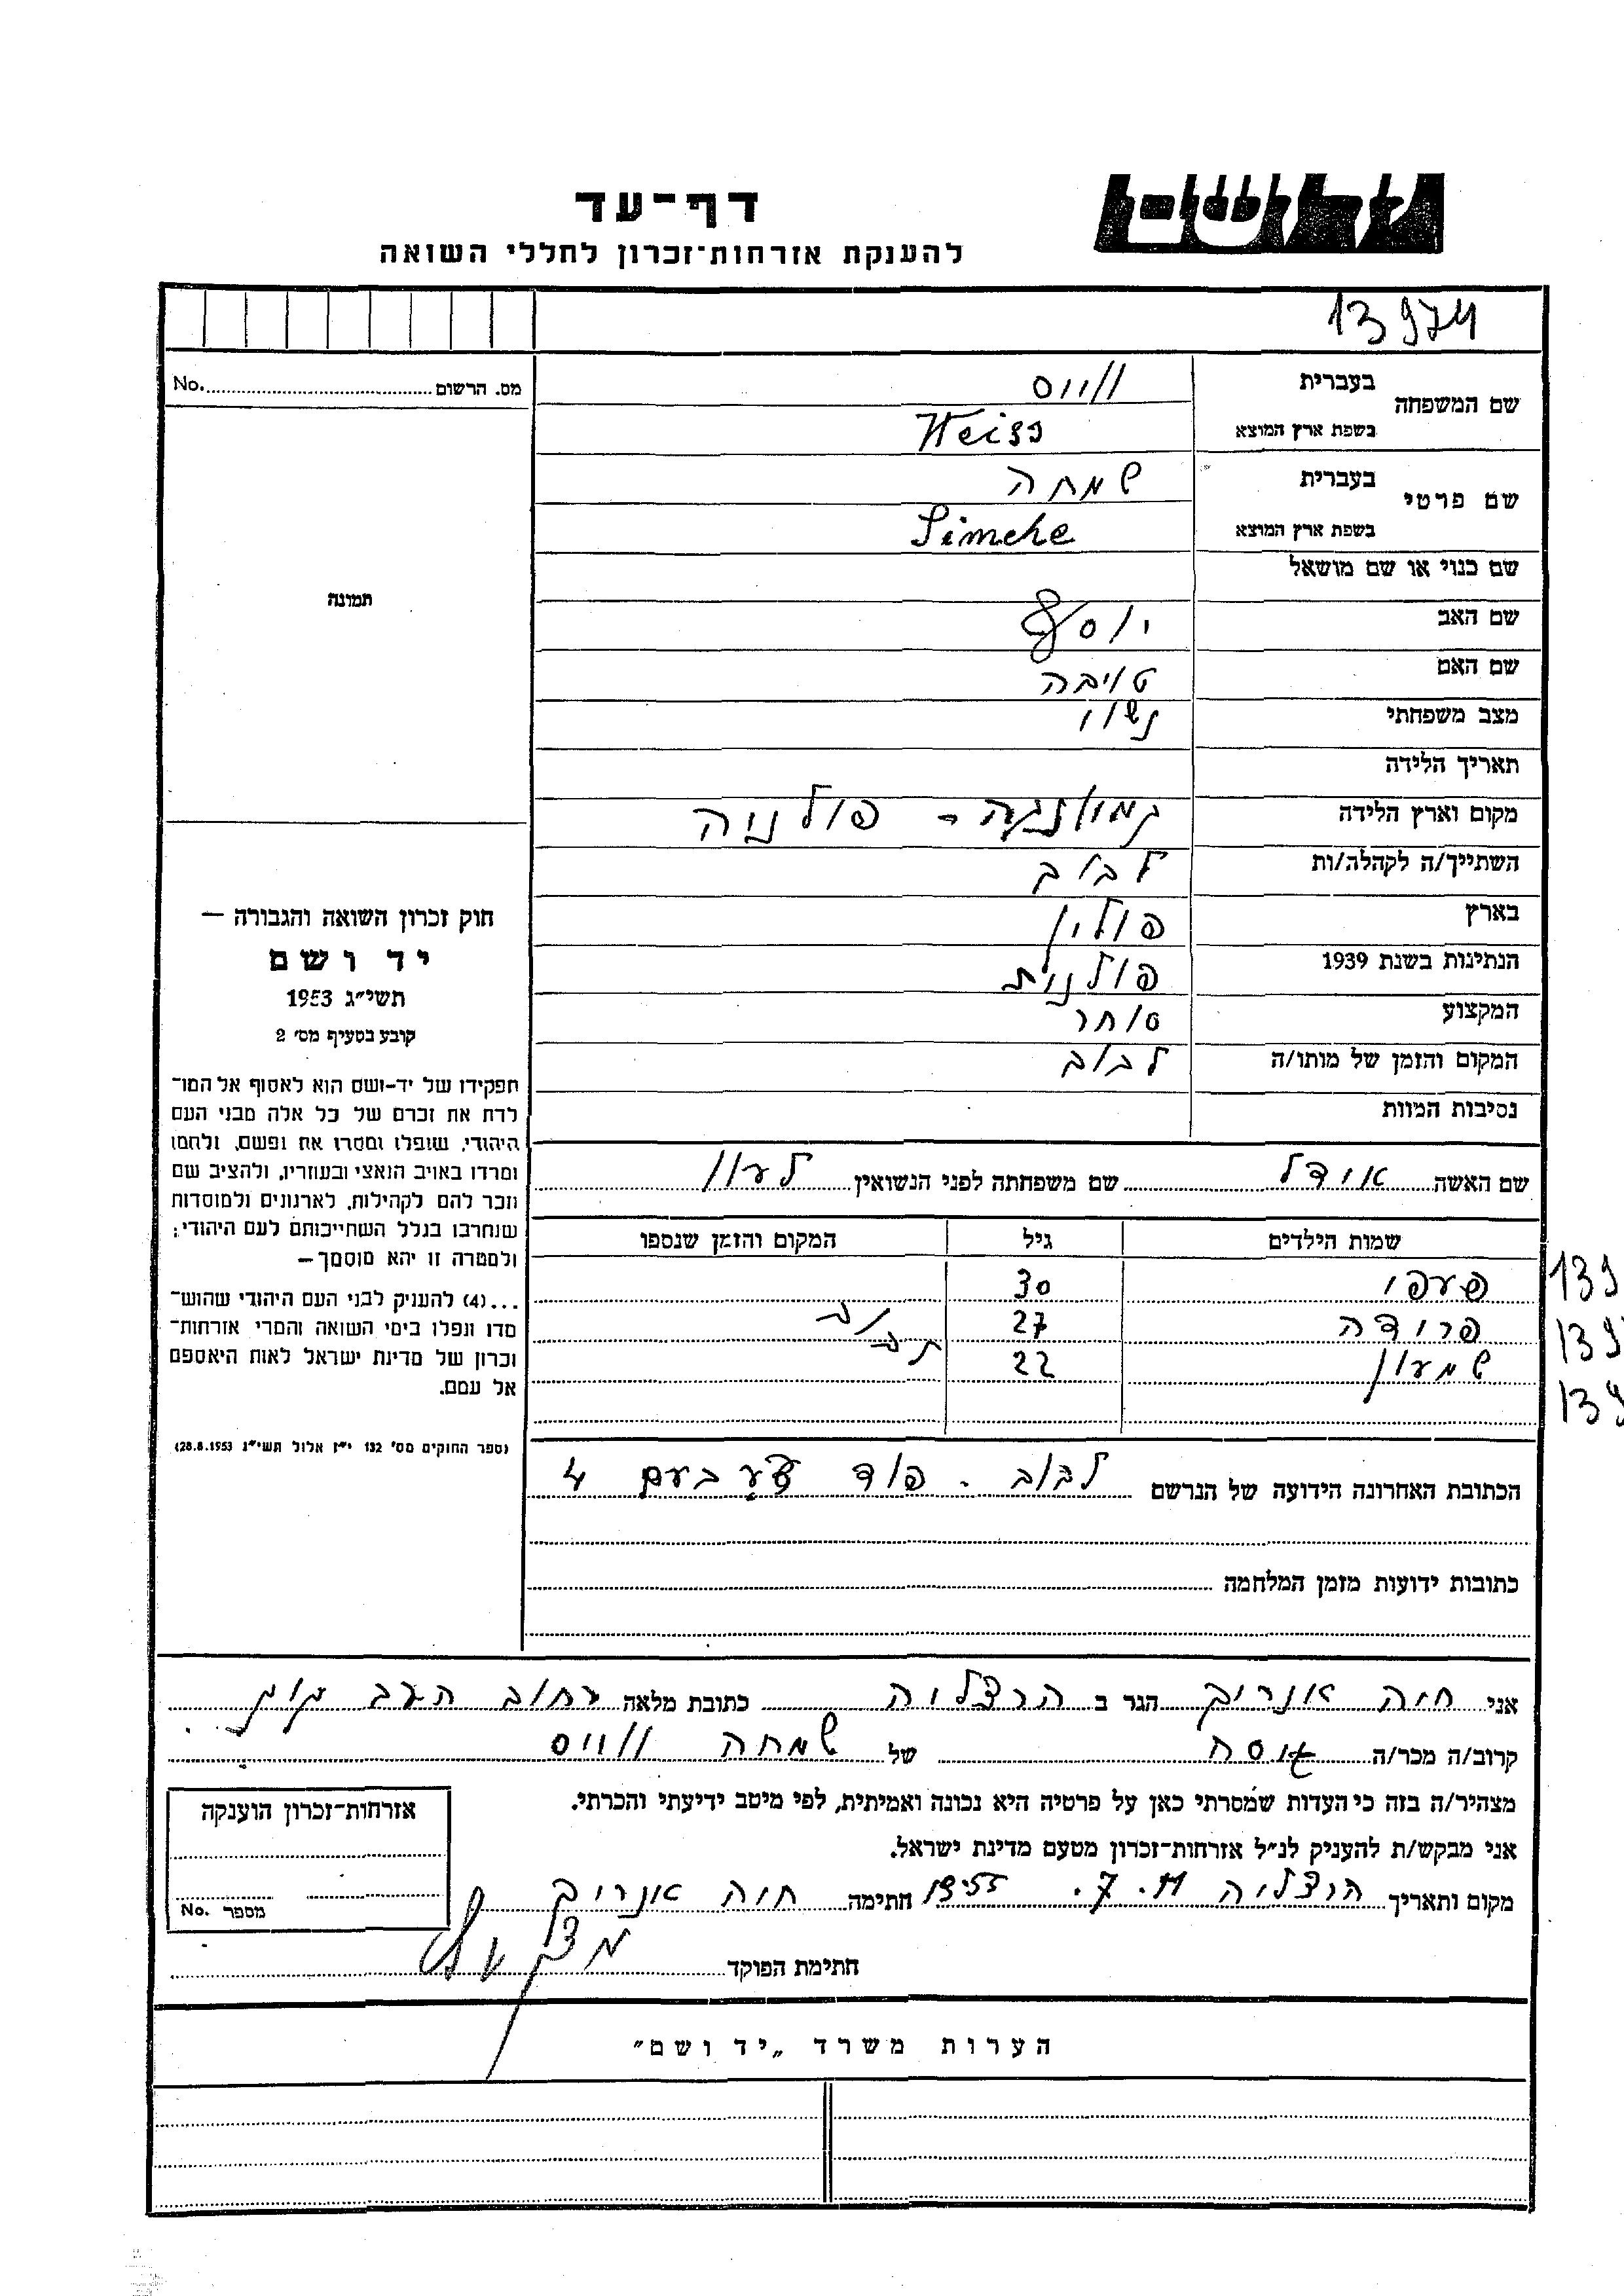 יד ושם
דף-עד
להענקת אזרחות-זכרון לחללי השואה
13974
שם המשפחה
בעברית ווייס
בשפת ארץ המוצא Weiss
שם פרטי
בעברית שמחה
בשפת ארץ המוצא Simche
שם כנוי או שם מושאל
שם האב יוסף
שם האם טויבה
מצב משפחתי נשוי
תאריך הלידה
מקום וארץ הלידה - פולניה
השתייך/ה לקהלה/ות לבוב
בארץ פולין
הנתינות בשנת 1939 פולנית
המקצוע סוחר
המקום והזמן של מותו/ה לבוב
נסיבות המוות
מס. הרשום No.
תמונה
חוק זכרון השואה והגבורה —
יד ושם
תשי״ג 1953
קובע בסעיף מס׳ 2
תפקידו של יד-ושם הוא לאסוף אל המו-
לדת את זכרם של כל אלה מבני העם
היהודי, שנפלו ומסרו את נפשם, ולחמו
ומרדו באויב הנאצי ובעוזריו, ולהציב שם
וזכר להם לקהילות, לארגונים ולמוסדות
שנחרבו בגלל השתייכותם לעם היהודי;
ולמטרה זו יהא מוסמך—
...(4) להעניק לבני העם היהודי שהוש-
מדו ונפלו בימי השואה והמרי אזרחות-
זכרון של מדינת ישראל לאות היאספם
אל עמם.
(ספר החוקים מס׳ 132 י״ז אלול תשי״ג 28.8.1953)
שם האשה אידל שם משפחתה לפני הנשואין
שמות הילדים גיל המקום והזמן שנספו
פעפי 30
139
פרידה 27 לבוב
139
שמעון 22
139
הכתובת האחרונה הידועה של הנרשם לבוב - פוד 4
כתובות ידועות מזמן המלחמה
אני חיה הגר ב הרצליה כתובת מלאה רחוב הרב קוק
קרוב/ה מכר/ה של שמחה ווייס
מצהיר/ה בזה כי העדות שמסרתי כאן על פרטיה היא נכונה ואמיתית, לפי מיטב ידיעתי והכרתי.
אני מבקש/ת להעניק לנ״ל אזרחות-זכרון מטעם מדינת ישראל.
מקום ותאריך הרצליה 11.7.1955 חתימה חיה
חתימת הפוקד
אזרחות-זכרון הוענקה
מספר No.
הערות משרד „יד ושם״